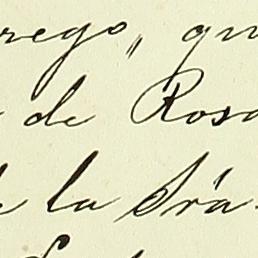 rego„ qu
de Rosa
la Srá-